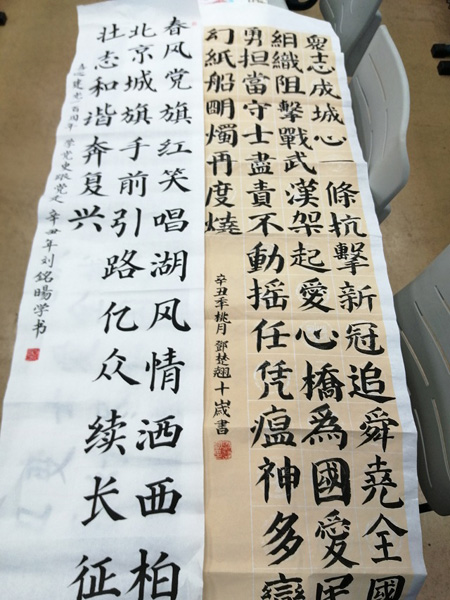 眾志成城心一條抗擊新冠追舜堯全國
組織阻擊戰武漢架起愛心橋為國愛民
勇担當守士盡責不動摇任凭瘟神多變
幻紙船明燭再度燒
辛丑年桃月 鄧楚翹十歲書
春风党旗红笑唱湖风情洒西柏
北京城旗手前引路亿众续长征
壮志和谐奔复兴
建党一百周年 学党史跟党走 辛丑年刘銘暘学书